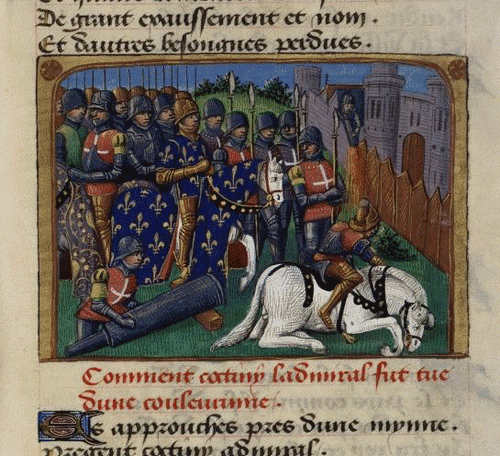 De grant exaussement et nom.
Et dautres besongnes perdues.
Comment coetiuy ladmiral fut tue
dune couleurinne.
Es approuches pres dune mynne.
Pregent coetiuy admiral.